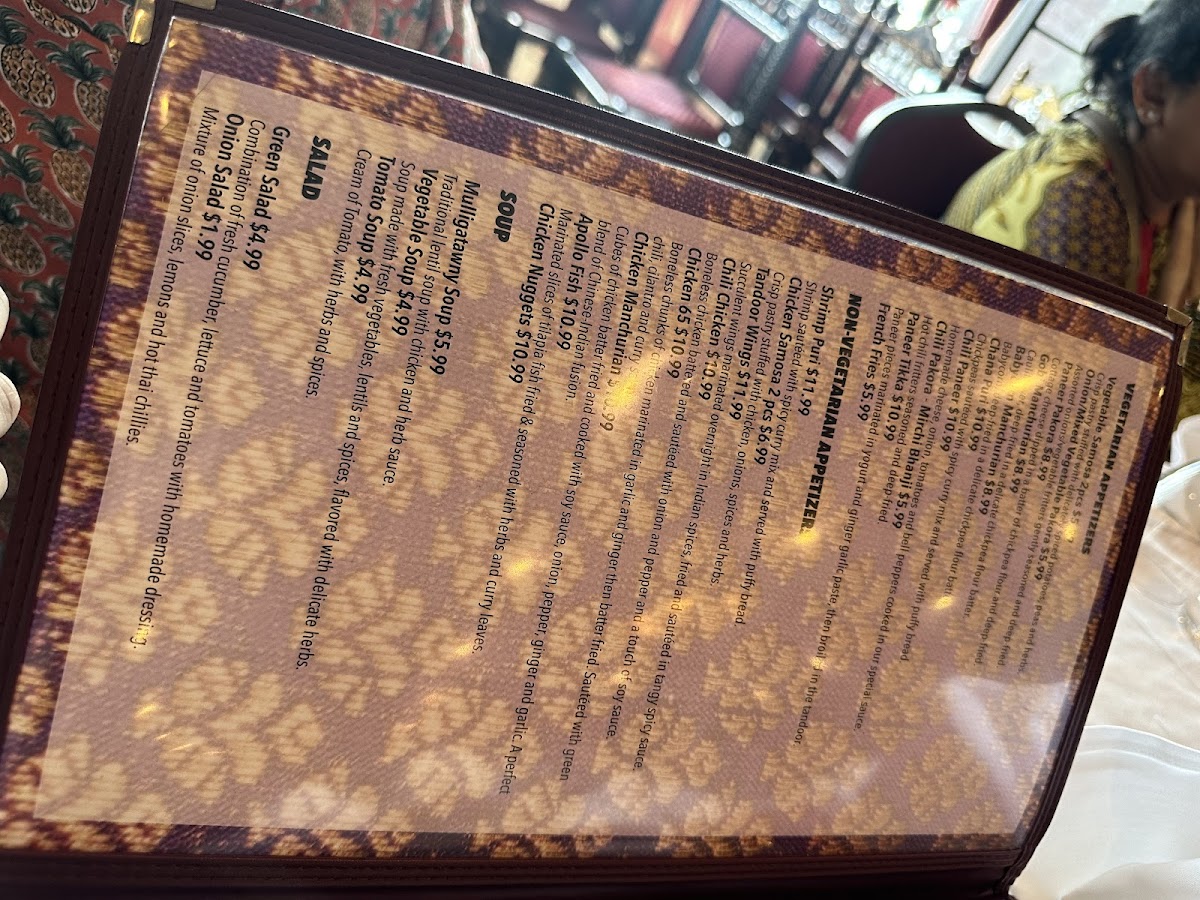 VEGETARIAN APPETIZERS
Vegetable Samosa 2pcs
Crisp pasty stuffed with delicately spiced potatoes, peas and herbs
Onion/Mixed Vegetable Pakora $5.99
Paneer Pakora $8.99
Gobi Manchurian $8.99
Baby Manchurian $8.99
deep fried in a delicate chickpea flour batter
Chana Puri $10.99
Chickpeas sautéed with spicy curry mix and served with puffy bread
Chili Paneer $10.99
Homemade cheese, onion, tomatoes and bell peppers cooked in our special sauce
Chili Pakora / Mirchi Bhanji $5.99
Hot chili fritters seasoned and deep fried
Paneer Tikka $10.99
Paneer pieces marinated in yogurt and ginger garlic paste, then broiled in the tandoor
French Fries $5.99
NON-VEGETARIAN APPETIZER
Shrimp Puri $11.99
Shrimp sautéed with spicy curry mix and served with puffy bread
Chicken Samosa 2 pcs $6.99
Crisp pasty stuffed with chicken, onions, spices and herbs.
Tandoor Wings $11.99
Succulent wings marinated overnight in Indian spices, fried and sautéed in tangy spicy sauce.
Chili Chicken $10.99
Boneless chicken battered and sautéed with onion and pepper and a touch of soy sauce.
Chicken 65 $10.99
Boneless chunks of chicken marinated in garlic and ginger then batter fried. Sautéed with green
chili, cilantro and curry
Chicken Manchurian
Cubes of chicken batter fried and cooked with soy sauce, onion, pepper, ginger and garlic. A perfect
blend of Chinese-Indian fusion.
Apolo Fish $10.99
Marinated slices of tilapia fish fried & seasoned with herbs and curry leaves.
Chicken Nuggets $10.99
SOUP
Mulligatawny Soup $5.99
Traditional lentil soup with chicken and herb sauce
Vegetable Soup $4.99
Soup made with fresh vegetables, lentils and spices, flavored with delicate herbs.
Tomato Soup $4.99
Cream of Tomato, with herbs and spices.
SALAD
Green Salad $4.99
Combination of fresh cucumber, lettuce and tomatoes with homemade dressing.
Onion Salad $1.99
Mixture of onion slices, lemons and hot thai chillies.